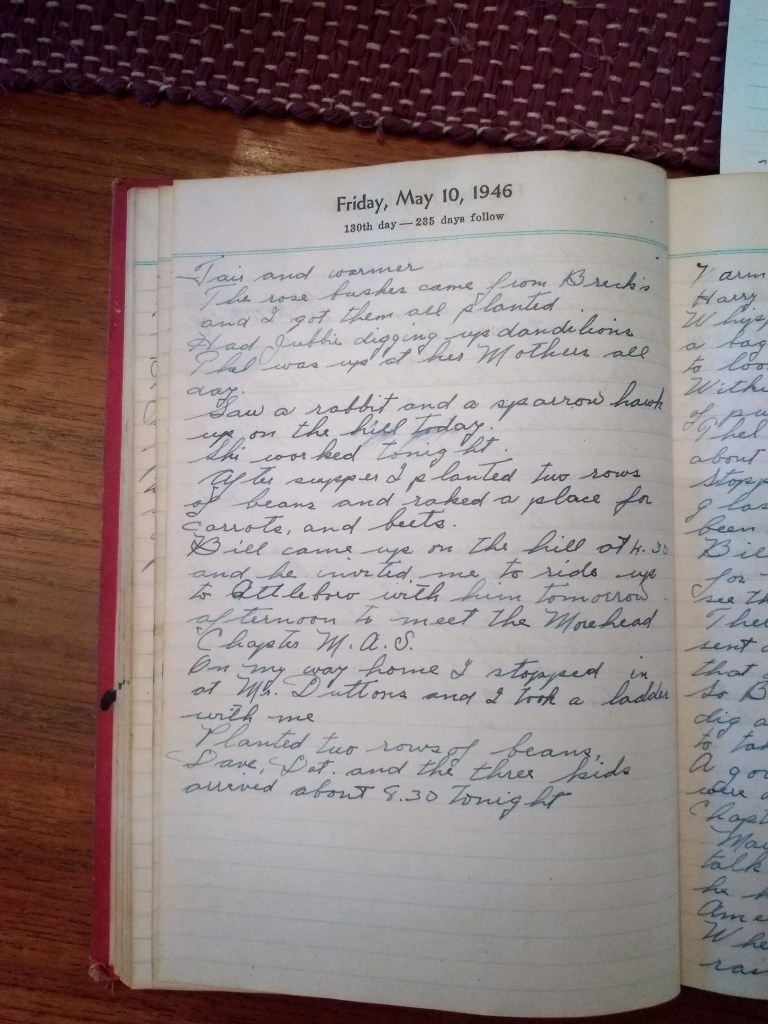 Friday, May 10, 1946
130th day — 235 days follow
Fair and warmer
The rose bushes came from Breck's
and I got them all planted.
Had Jubbie digging up dandelions
Thel was up at her Mothers all
day.
Saw a rabbit and a sparrow hawk
up on the hill today.
Shi worked tonight.
After supper I planted two rows
of beans and raked a place for
carrots, and beets.
Bill came up on the hill at 4.30
and he invited me to ride up
to Attleboro with him tomorrow
afternoon to meet the Morehead
Chapter M.A.S.
On my way home I stopped in
at Mr. Duttons and I took a ladder
with me
Planted two rows of beans,
Dave, Dot. and the three kids
arrived about 8.30 tonight
Harry
a bag
to
of
Thel
about
been
Bil
for
see th
Ther
sent
that
So B
dig a
to
A
were
Chapt
talk
he
Ame
Whe
rai